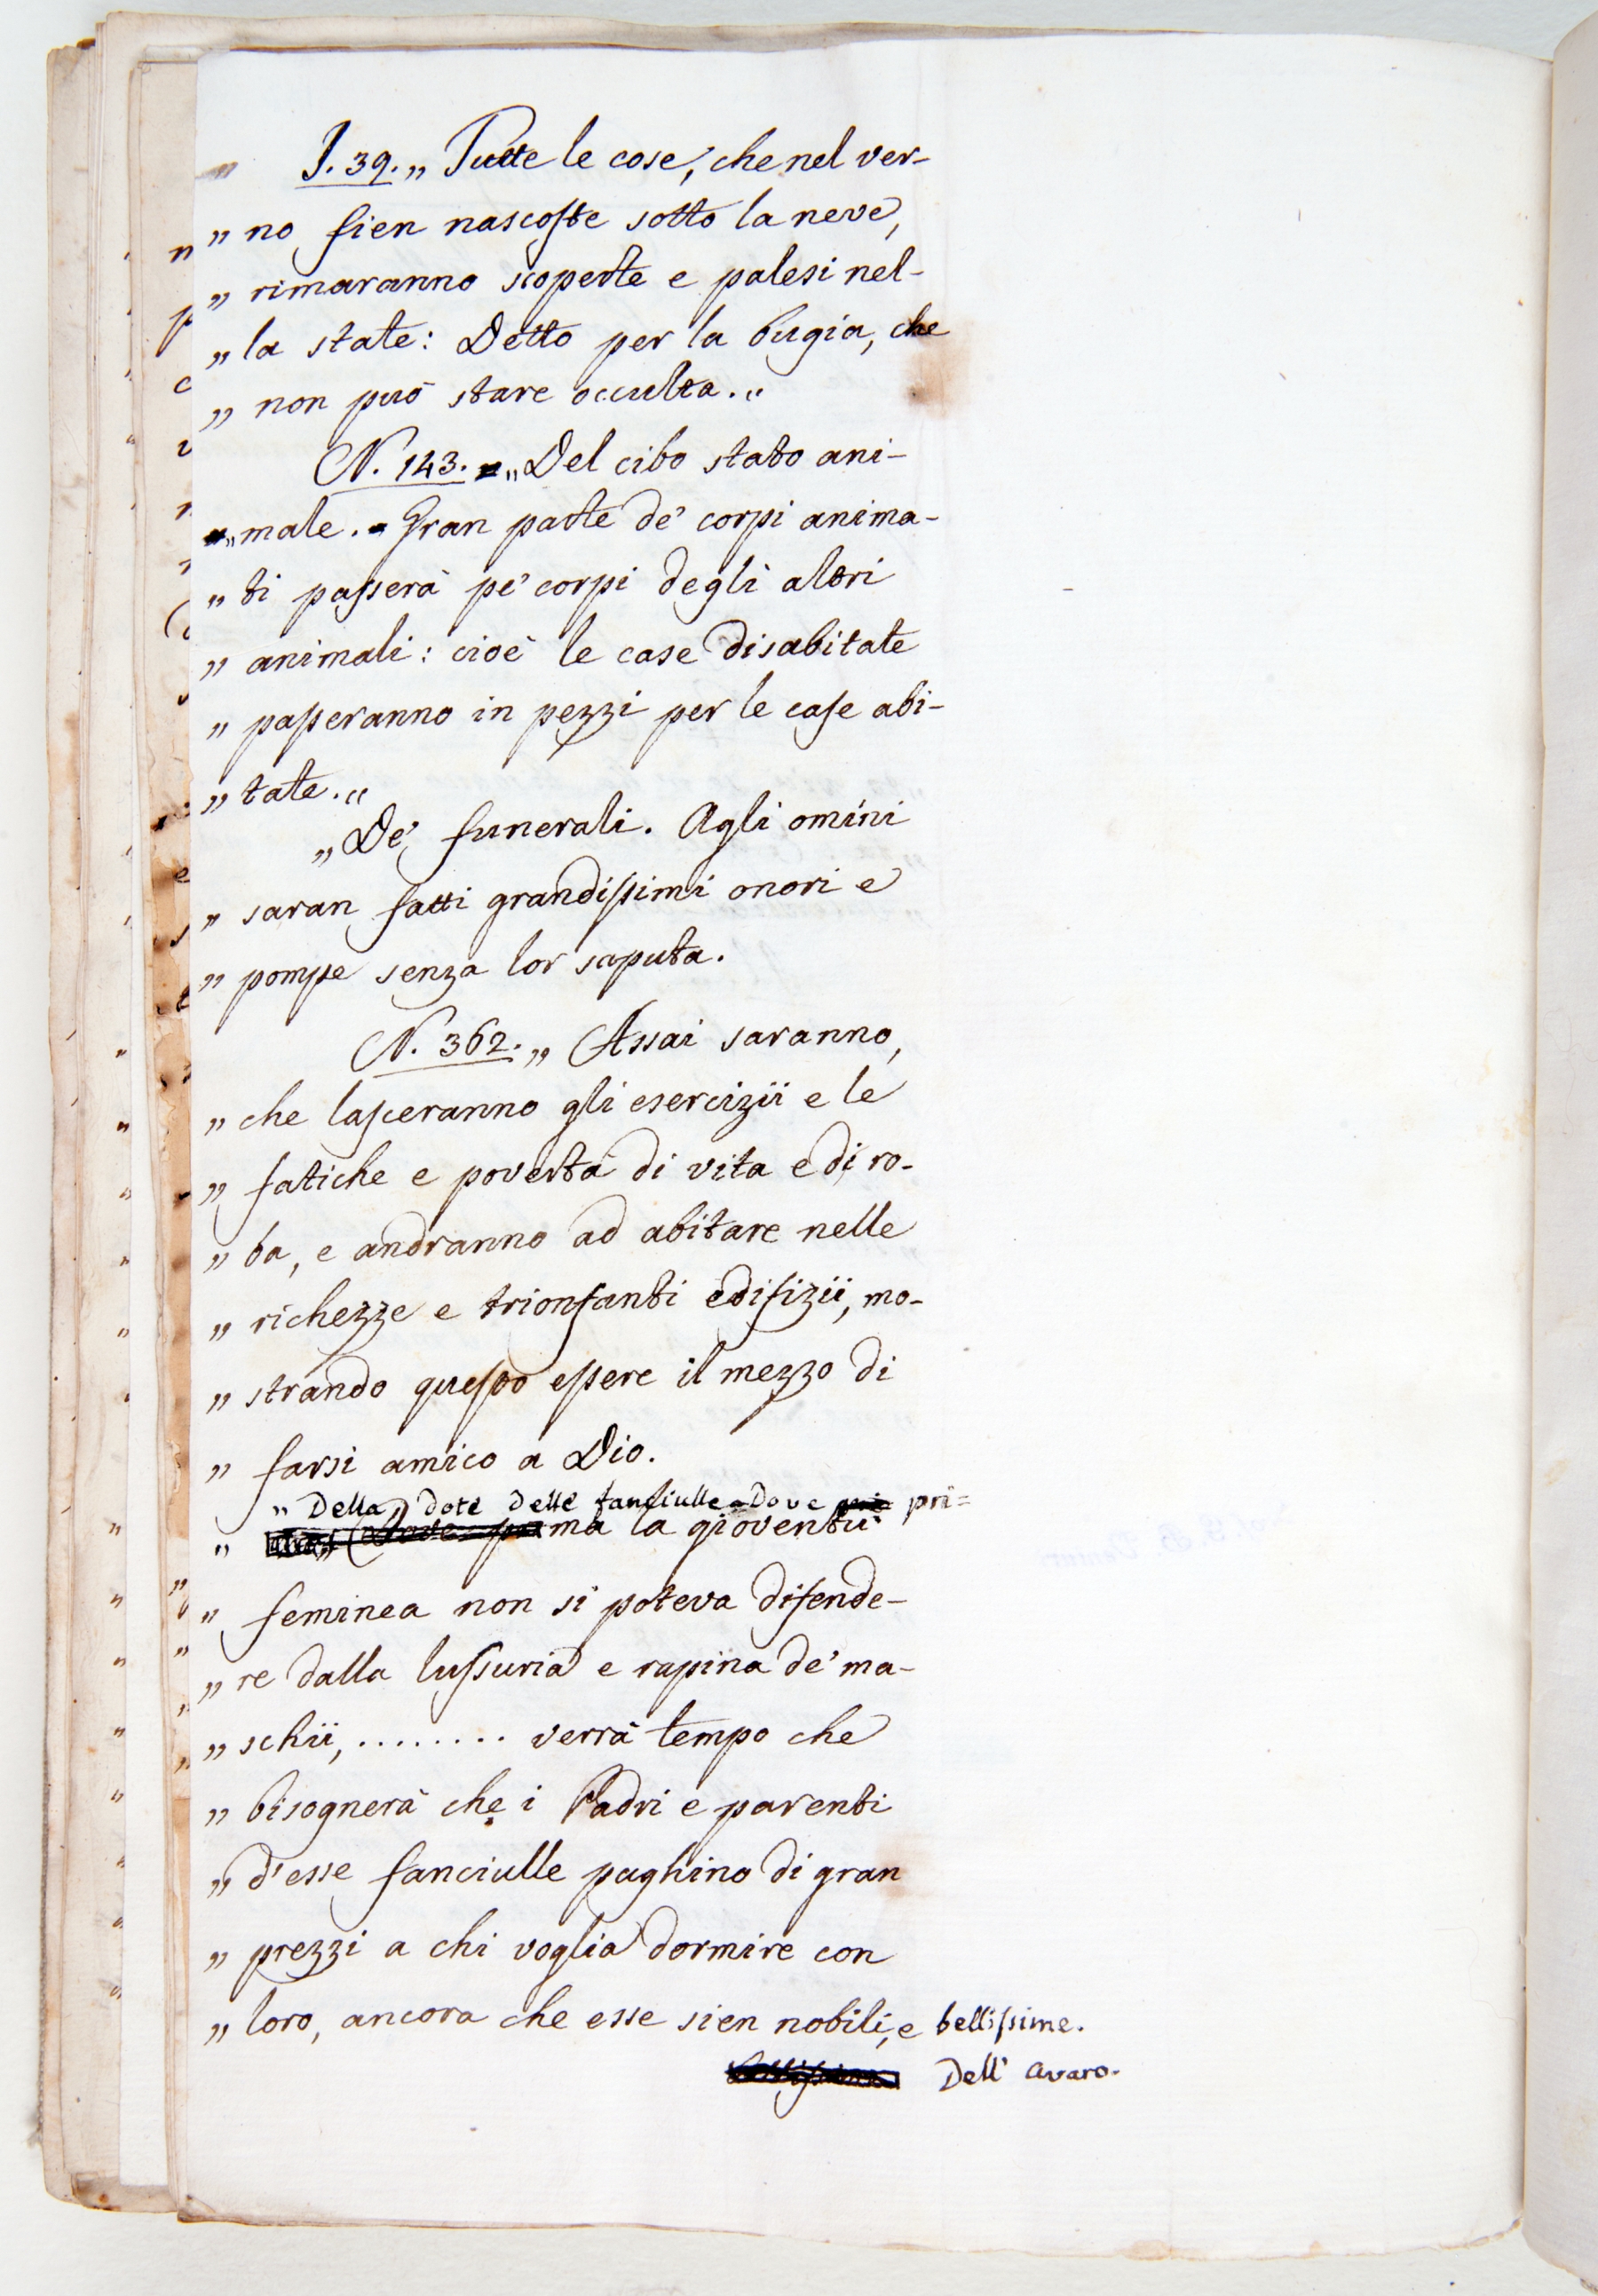 „ I. 39. „ Tutte le cose, che nel ver-
„ no fien nascoste sotto la neve,
„ rimaranno scoperte e palesi nel-
„ la state: Detto per la bugia, che
„ non può stare occulta. „
N. 143. „ Del cibo stato ani-
„ male. - Gran parte de' corpi anima-
„ ti passerà pe' corpi degli altri
„ animali: cioè le case disabitate
„ passeranno in pezzi per le case abi-
„ tate. „
„ De' funerali. Agli omini
„ saran fatti grandissimi onori e
„ pompe senza lor saputa.
N. 362. „ Assai saranno,
„ che lasceranno gli esercizii e le
„ fatiche e povertà di vita e di ro-
„ ba, e andranno ad abitare nelle
„ richezze e trionfanti edifizii, mo-
„ strando questo essere il mezzo di
„ farsi amico a Dio.
„ Della dote delle fanciulle - Dove pri=
„ ma la gioventù
„ feminea non si poteva difende-
„ re dalla lussuria e rapina de' ma-
„ schii, ........ verrà tempo che
„ bisognerà che i Padri e parenti
„ d'esse fanciulle paghino di gran
„ prezzi a chi voglia dormire con
„ loro, ancora che esse sien nobili, e bellissime.
Dell' avaro.